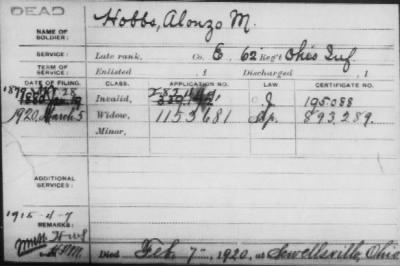 DEAD
NAME OF SOLDIER: Hobbs, Alonzo M.
SERVICE: Late rank, Co. E, 62 Reg't Ohio Inf.
TERM OF SERVICE: Enlisted , 1 Discharged , 1
DATE OF FILING. CLASS. APPLICATION NO. LAW. CERTIFICATE NO.
Invalid, J 195.088
1920 March 5 Widow, 1153681 Ap. 893.289.
Minor,
ADDITIONAL SERVICES:
1915-4-7
REMARKS:
Died Feb 7-, 1920, at Sewellsville, Ohio